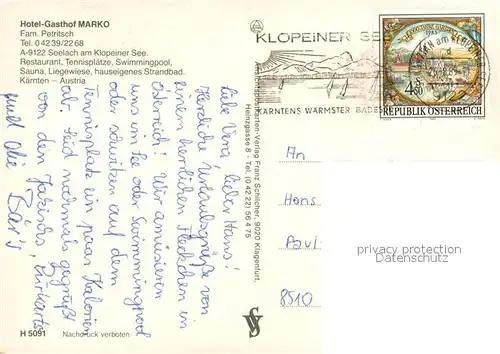 Hotel-Gasthof MARKO
Fam. Petritsch
Tel. 0 42 39/22 68
A-9122 Seelach am Klopeiner See.
Restaurant, Tennisplätze, Swimmingpool,
Sauna, Liegewiese, hauseigenes Strandbad.
Kärnten – Austria
Liebe Vera, lieber Hans!
Herzliche Urlaubsgrüße von
einem herrlichen Fleckchen in
Österreich! Wir amüsieren
uns im See oder Swimmingpool
oder schwitzen auf dem
Tennisplatz ein paar Kalorien
ab. Seid nochmals gegrüßt
von den
und die Bär's
H 5091
Nachdruck verboten
Ansichtskarten-Verlag Franz Schilcher, 9020 Klagenfurt,
Heinzgasse 8 - Tel. (0 42 22) 56 4 75
KLOPEINER SEE
KÄRNTENS WÄRMSTER BADESEE
1985
REPUBLIK ÖSTERREICH
An
Hans
Paul
8510
privacy protection